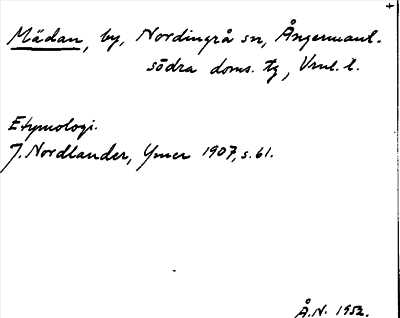 Mädan, by, Nordingrå sn, Ångermanl.
södra doms. tg, Vnl. l.
Etymologi.
J. Nordlander, Ymer 1907, s. 61.
Å.N. 1952.